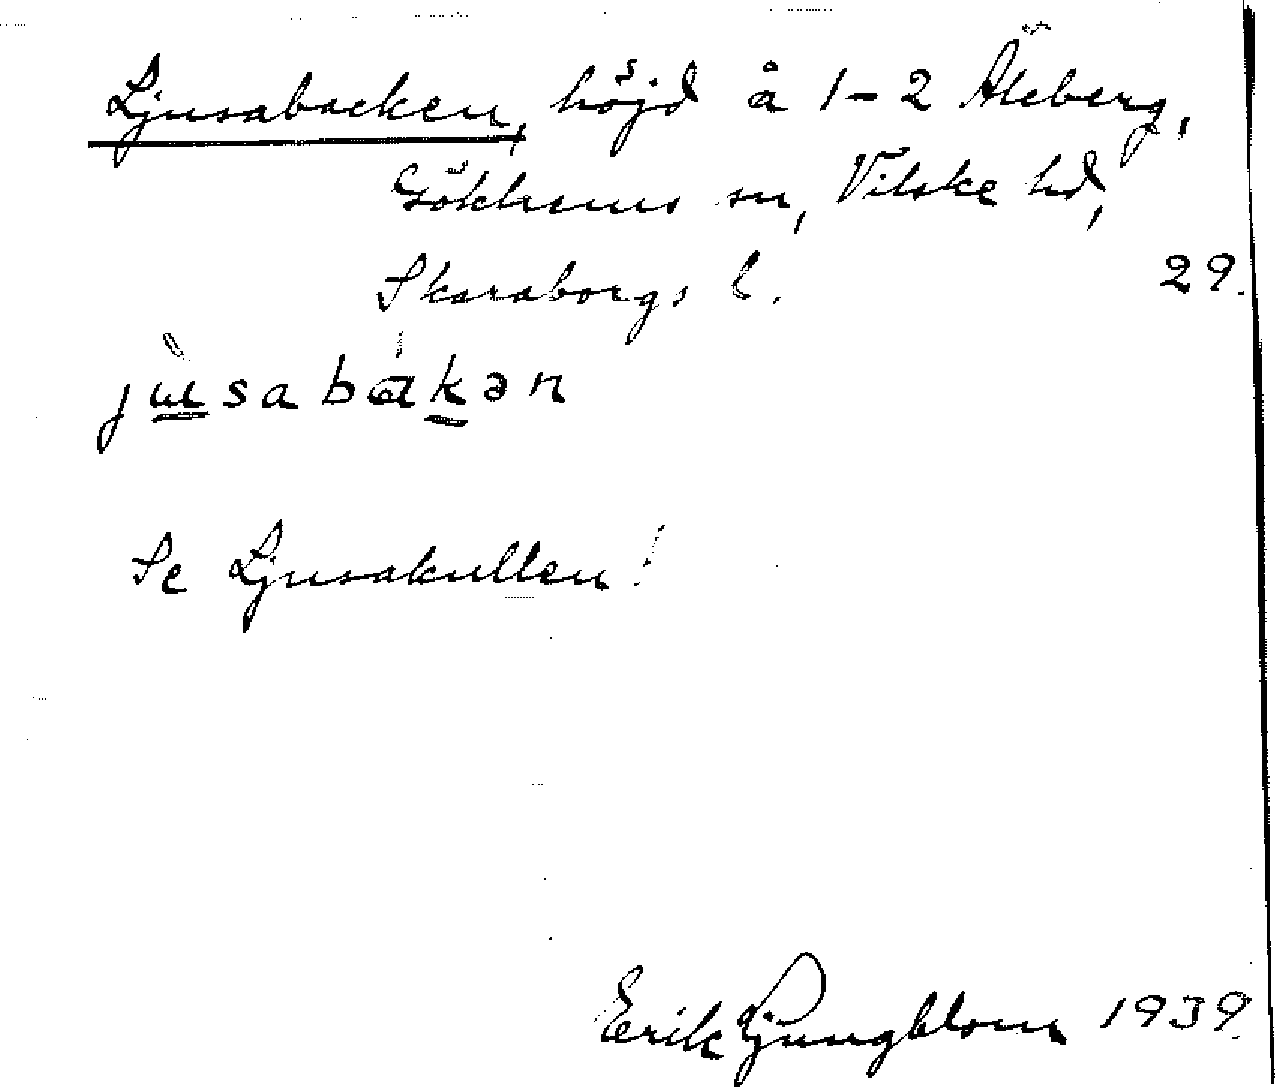 Ljusabacken, höjd å 1-2 Åleberg,
Gökhems sn, Vilske hd,
Skaraborgs l. 29.
jùsabákən
Se Ljusakullen!
Erik Ljungblom 1939